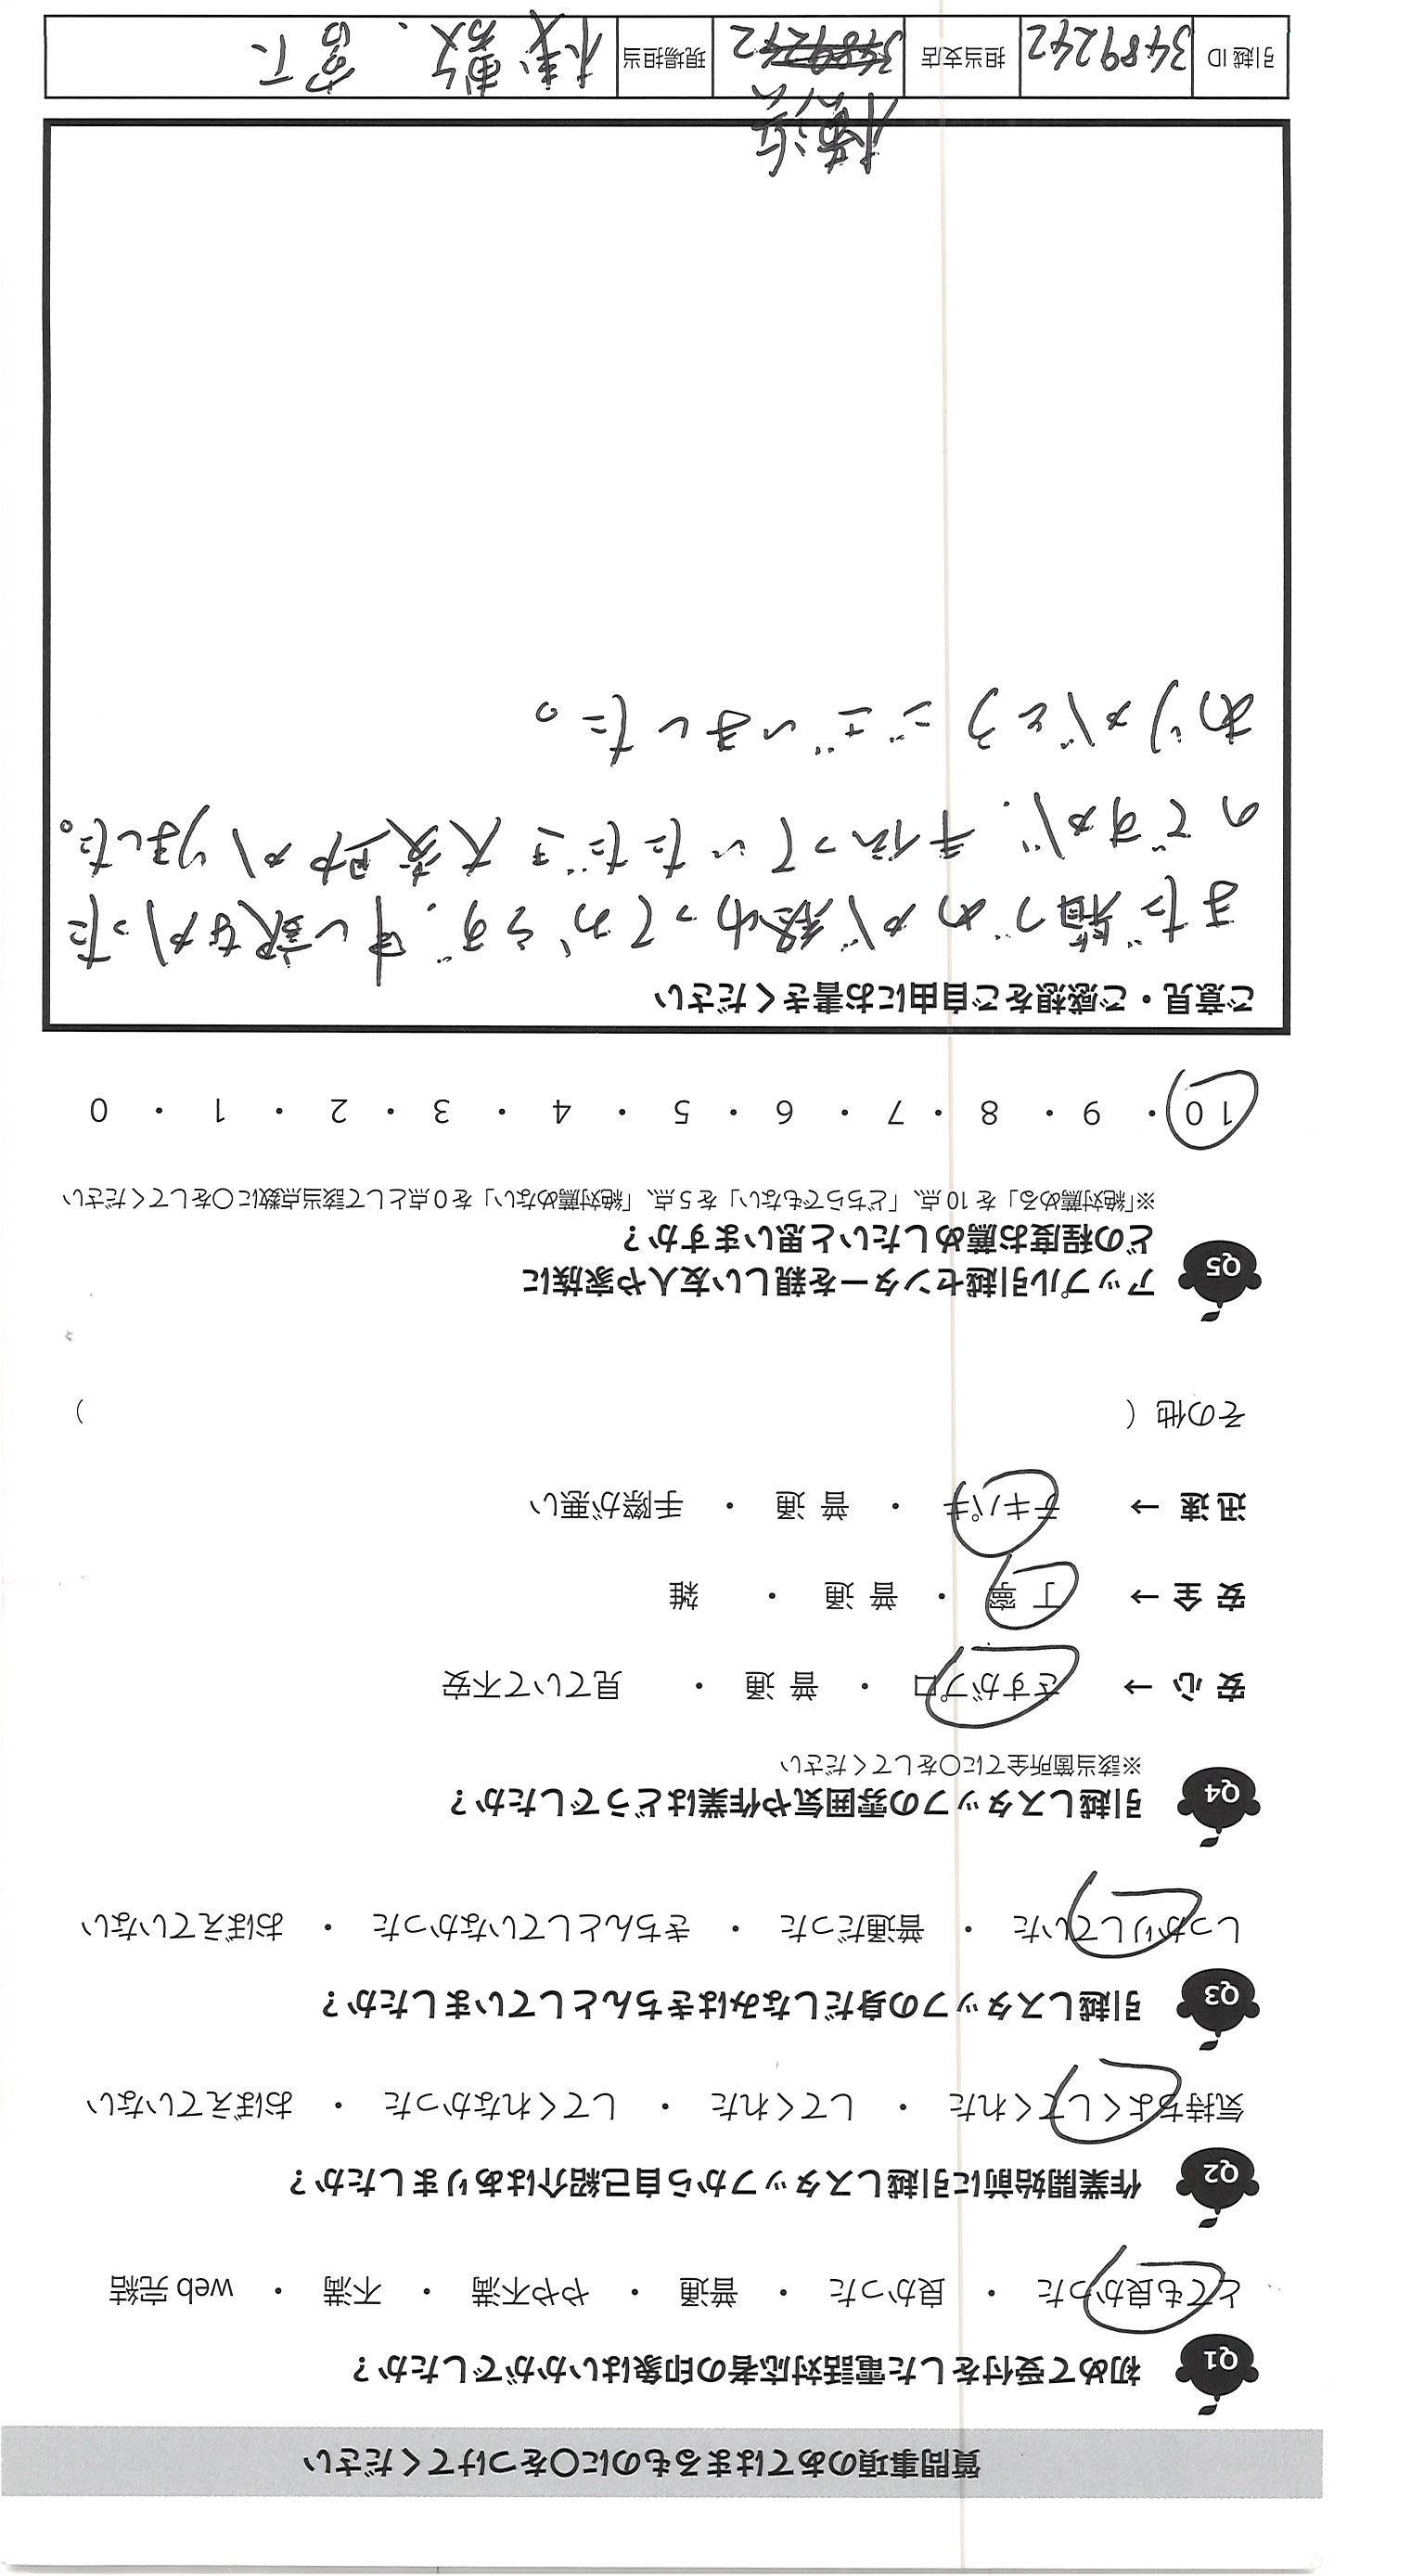 質問事項のあてはまるものに〇をつけてください
Q1 初めて受付をした電話対応者の印象はいかがでしたか?
とても良かった ・ 良かった ・ 普通 ・ やや不満 ・ 不満 ・ web 完結
Q2 作業開始前に引越しスタッフから自己紹介はありましたか?
気持ちよくしてくれた ・ してくれた ・ してくれなかった ・ おぼえていない
Q3 引越しスタッフの身だしなみはきちんとしていましたか?
しっかりしていた ・ 普通だった ・ きちんとしていなかった ・ おぼえていない
Q4 引越しスタッフの雰囲気や作業はどうでしたか?
※該当箇所全てに〇をしてください
安 心 → さすがプロ ・ 普 通 ・ 見ていて不安
安 全 → 丁 寧 ・ 普 通 ・ 雑
迅 速 → テキパキ ・ 普 通 ・ 手際が悪い
その他 ( )
Q5 アップル引越センターを親しい友人や家族に
どの程度お薦めしたいと思いますか?
※「絶対薦める」を 10 点、「どちらでもない」を 5 点、「絶対薦めない」を 0 点として該当点数に〇をしてください
10 ・ 9 ・ 8 ・ 7 ・ 6 ・ 5 ・ 4 ・ 3 ・ 2 ・ 1 ・ 0
ご意見・ご感想をご自由にお書きください
まだ箱づめが終わっておらず、申し訳なかった
のですが、手伝っていただき大変助かりました。
ありがとうございました。
横浜
引越 ID 3489242 担当支店 3489242 現場担当 宮下